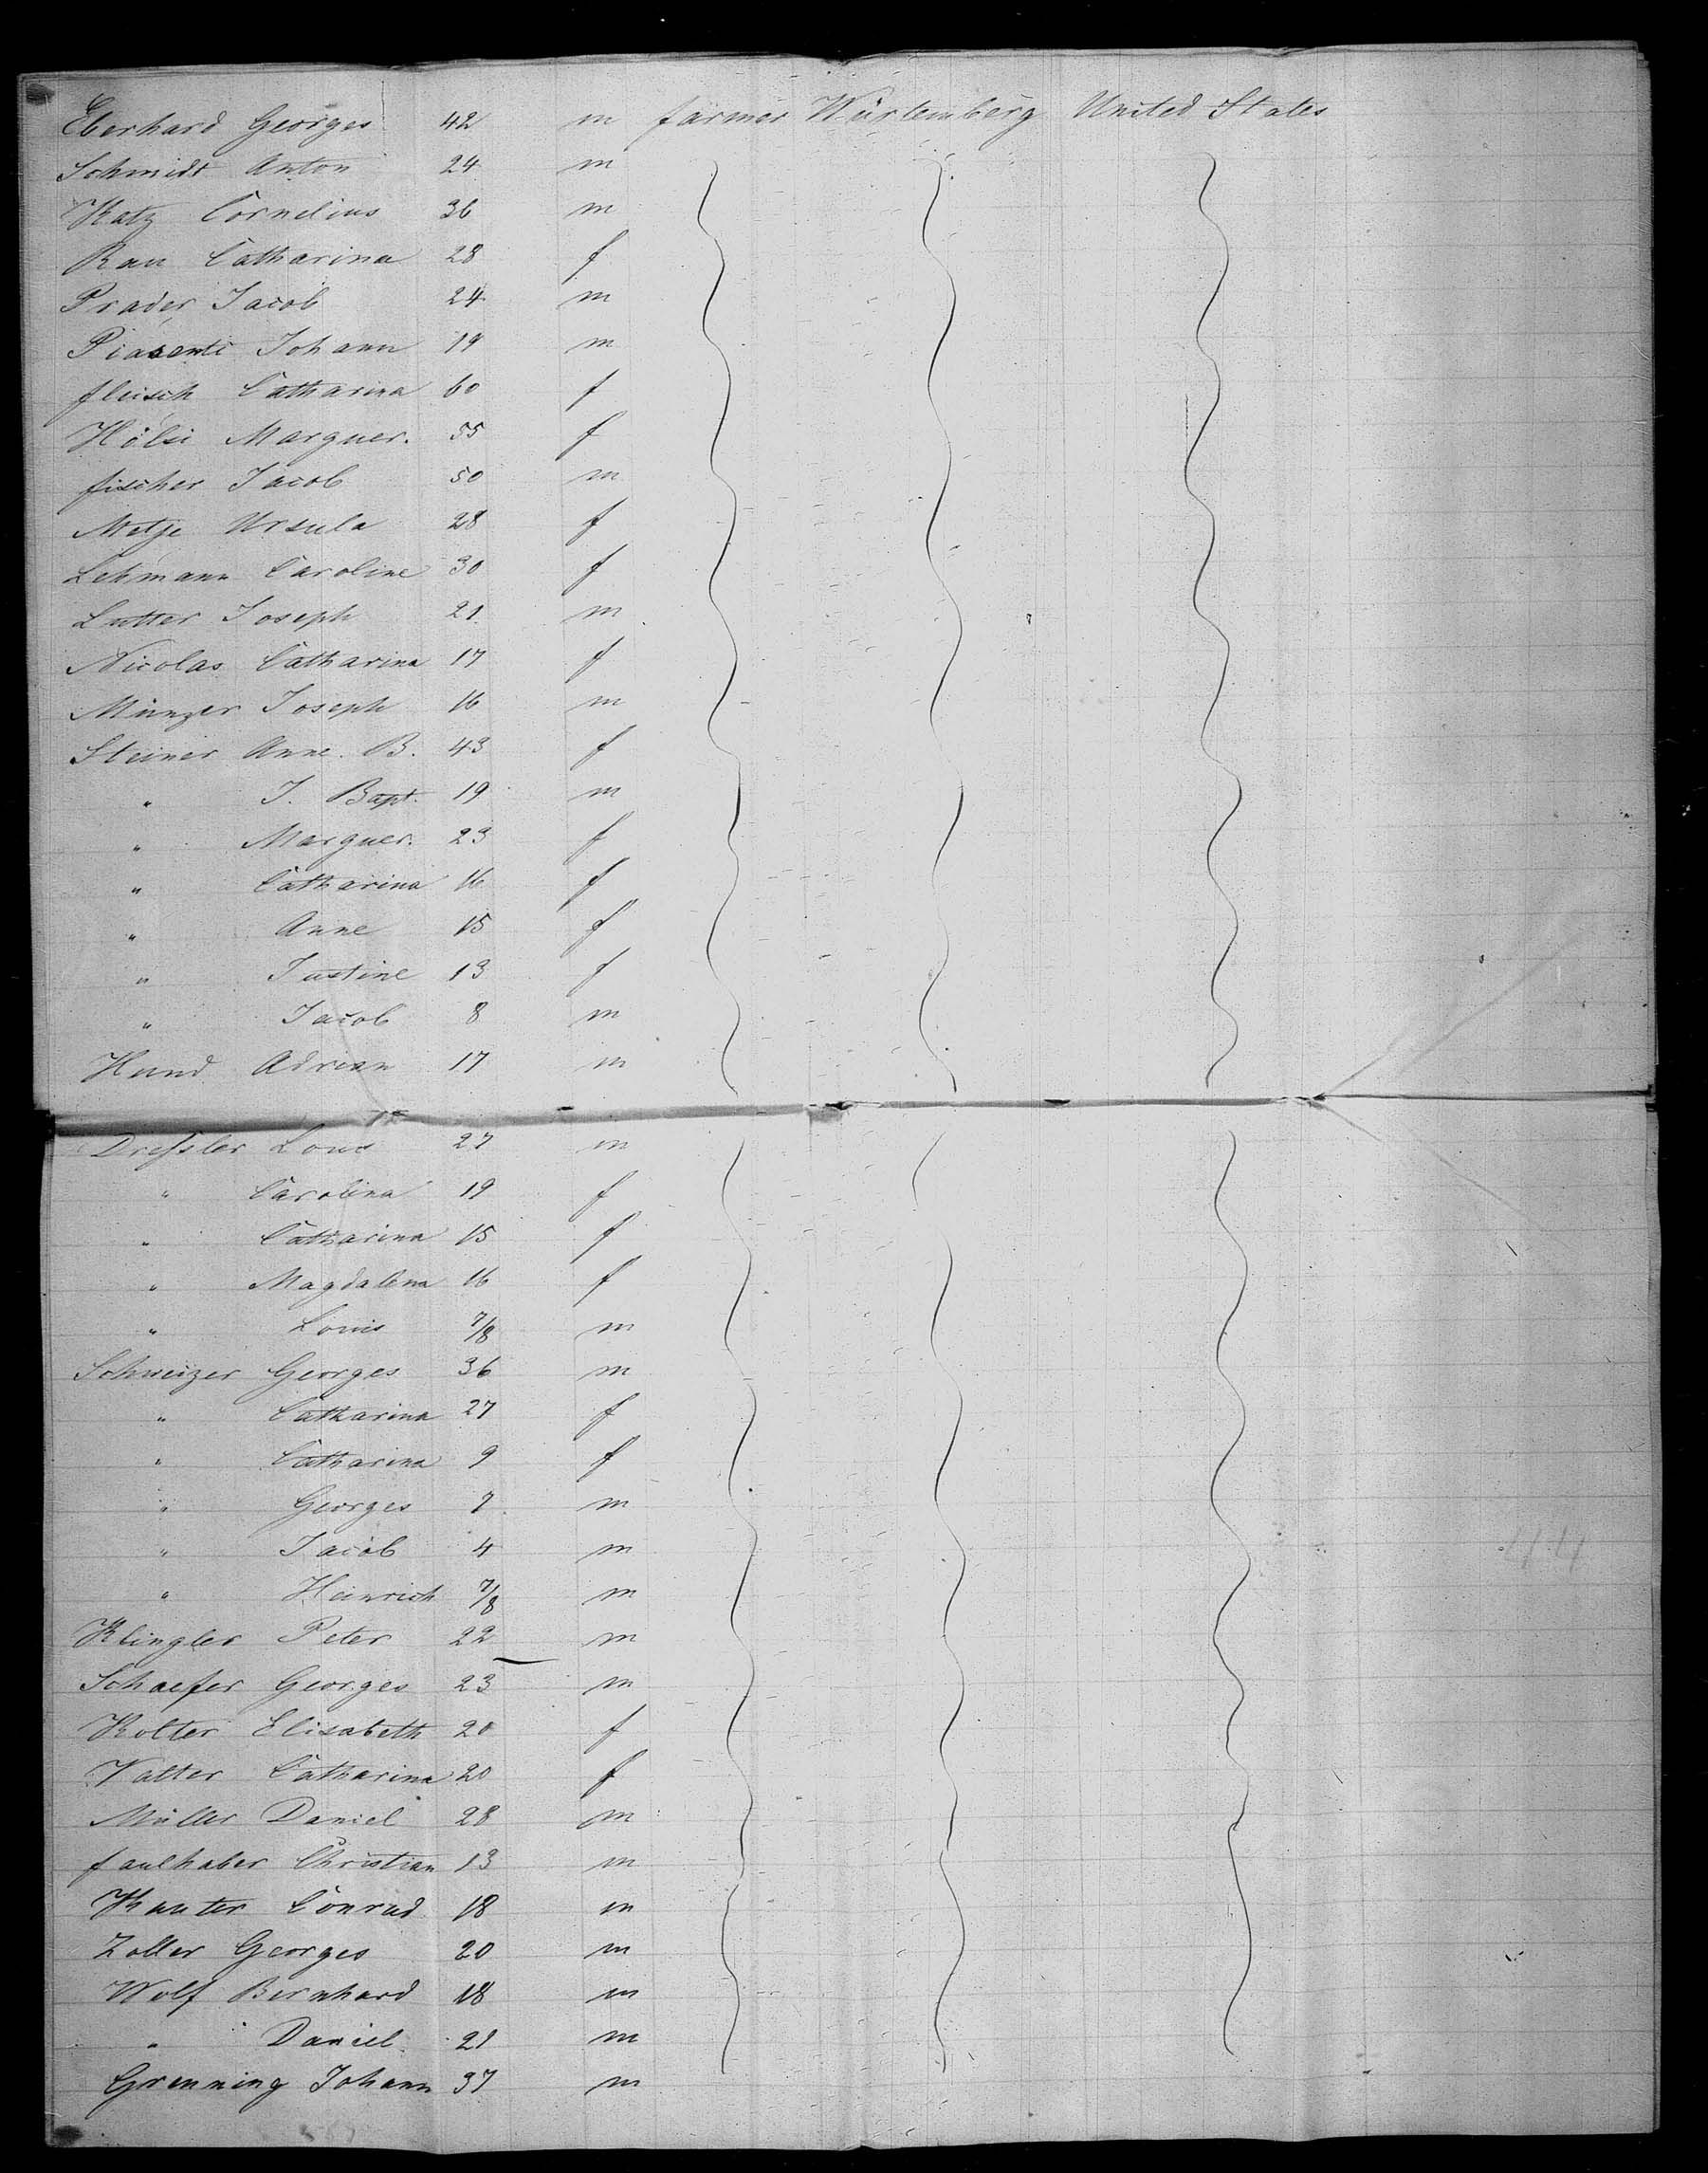 Eberhard Georges 42 m farmer Würtemberg United States
Schmidt Anton 24 m
Katz Cornelius 36 m
Rau Catharina 28 f
Prader Jacob 24 m
Piasenti Johann 19 m
fleisch Catharina 60 f
Hölsi Marguer. 55 f
fischer Jacob 50 m
Metje Ursula 28 f
Lehmann Caroline 30 f
Lutter Joseph 21 m
Nicolas Catharina 17 f
Münzer Joseph 16 m
Steiner Anne. B. 43 f
" J. Bapt. 19 m
" Marguer. 23 f
" Catharina 16 f
" Anne 15 f
" Justine 13 f
" Jacob 8 m
Hund Adrian 17 m
Dressler Louis 27 m
" Carolina 19 f
" Catharina 15 f
" Magdalena 16 f
" Louis 7/8 m
Schweizer Georges 36 m
" Catharina 27 f
" Catharina 9 f
" Georges 7 m
" Jacob 4 m
" Heinrich 7/8 m
Klingler Peter 22 m
Schaefer Georges 23 m
Kolter Elisabeth 20 f
Vatter Catharina 20 f
Müller Daniel 28 m
faulhaber Christian 13 m
Kauter Conrad 18 m
Zoller Georges 20 m
Wolf Bernhard 18 m
" Daniel 21 m
Grenning Johann 37 m
44